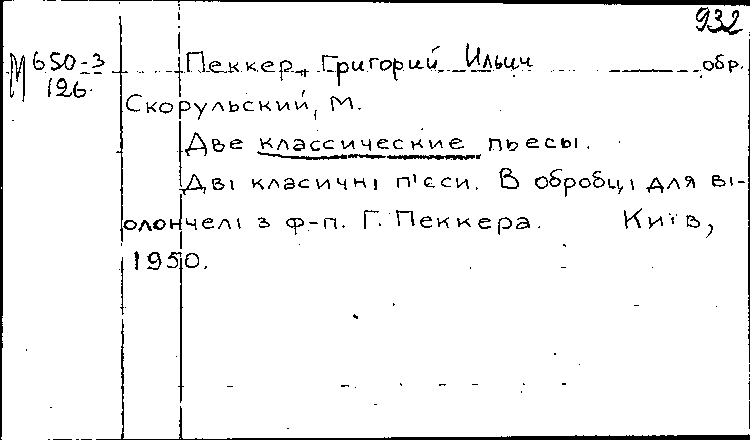 932
М 650-3
126.
Пеккер, Григорий Ильич обр.
Скорульский, М.
Две классические пьесы.
Дві класичні п'єси. В обробці для ві-
олончелі з ф-п. Г. Пеккера. Київ,
1950.